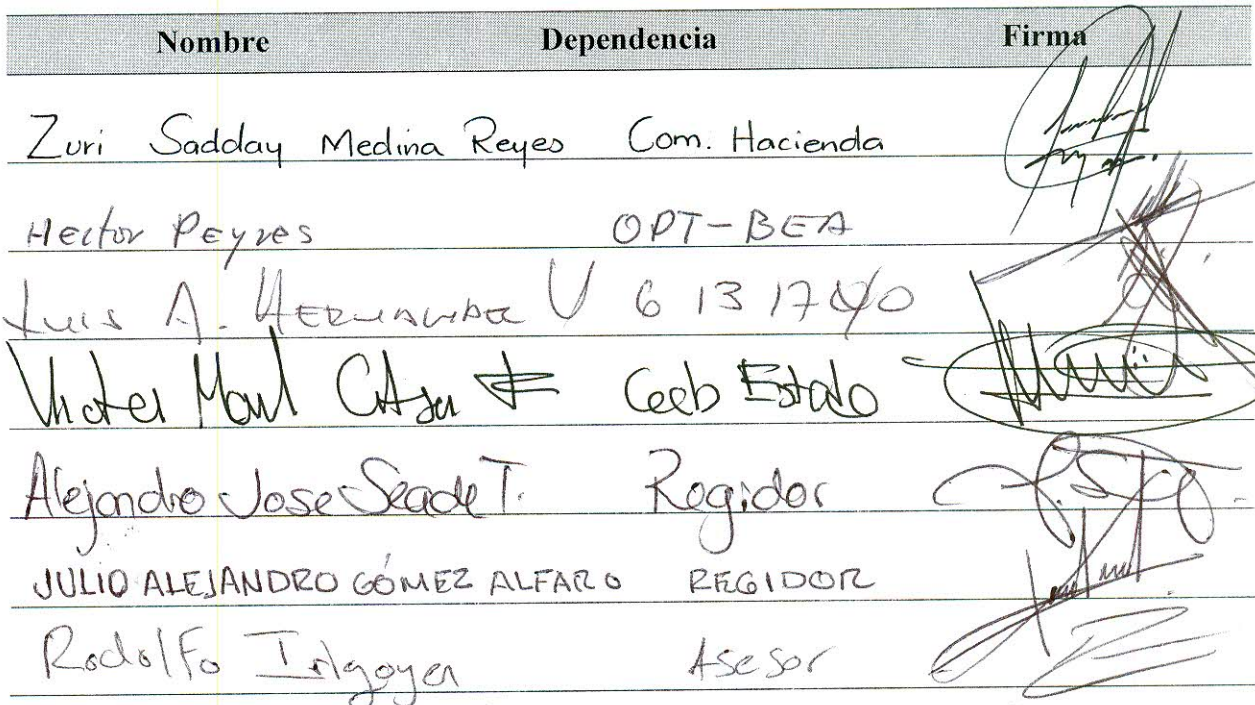 Nombre Dependencia Firma
Zuri Sadday Medina Reyes Com. Hacienda
Hector Peyres OPT-BEA
Luis A. HERNANDEZ V 6 13 17
Estado
Alejandro Jose Seade T. Regidor
JULIO ALEJANDRO GÓMEZ ALFARO REGIDOR
Rodolfo Irigoyen Asesor